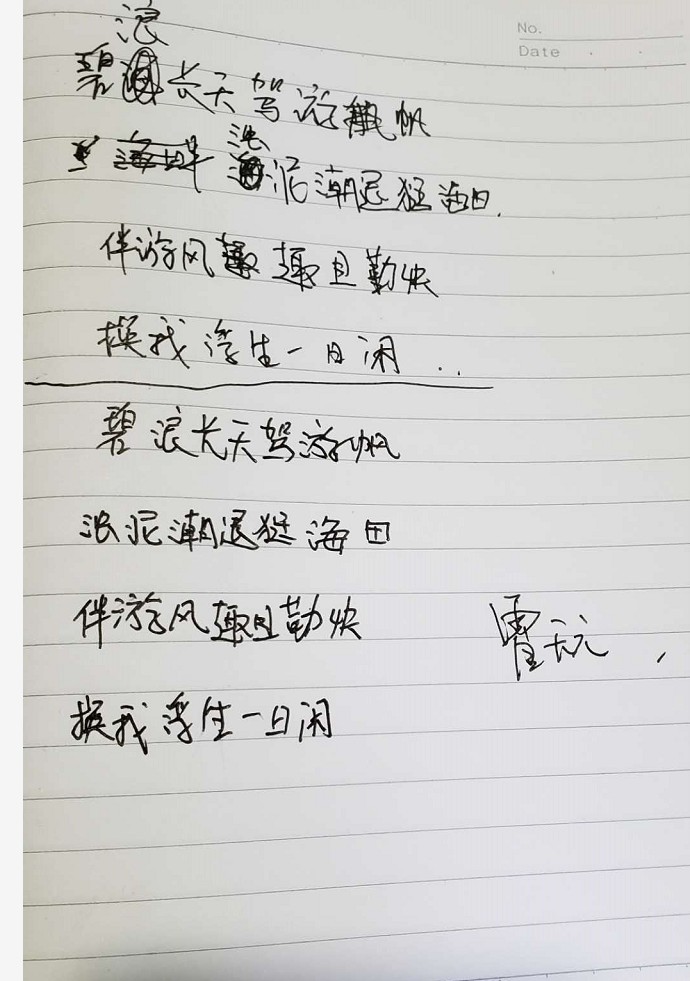 No.
Date
碧浪长天驾游帆
浪泥潮退狂海田
伴游风趣且勤快
换我浮生一日闲..
碧浪长天驾游帆
浪泥潮退狂海田
伴游风趣且勤快
换我浮生一日闲